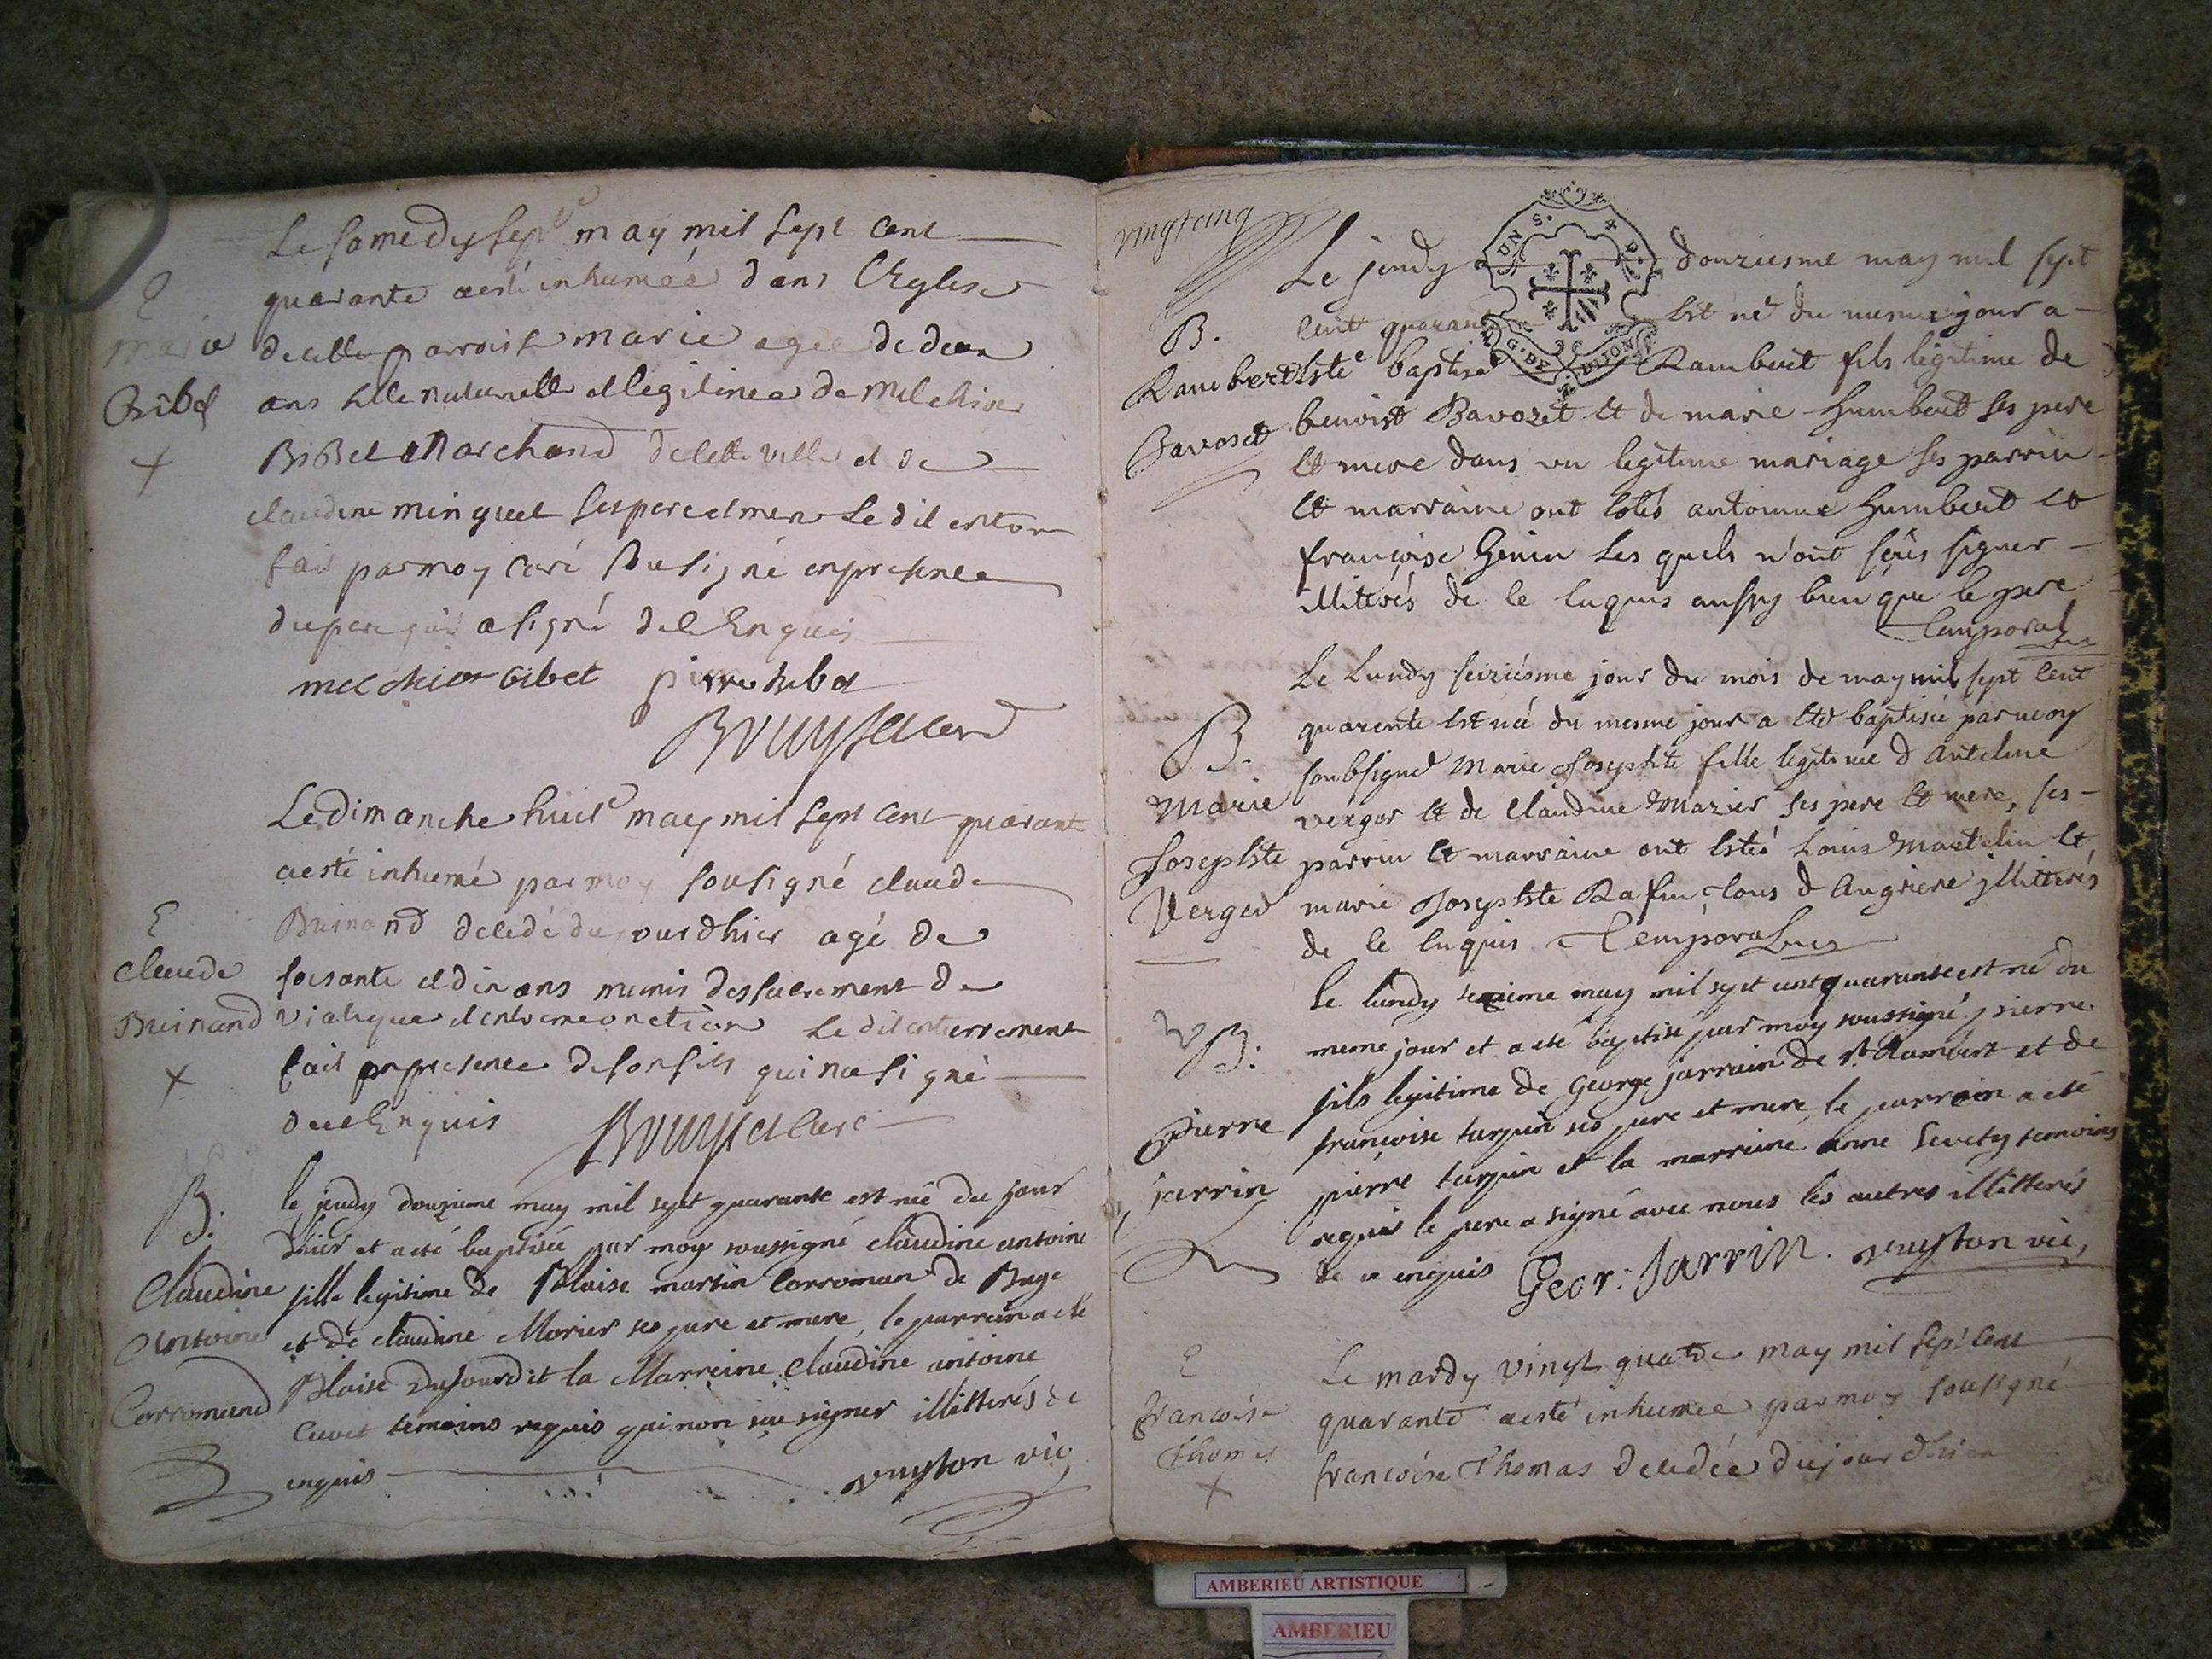 Le Samedy sept^e may mil sept cent
quarante a esté inhumée dans l'Eglise
E
Marie
Bibet
+
de cette parroisse marie agée de deux
ans fille naturelle et legitime de Melchior
Bibet Marchand de cette ville et de
claudine minguet ses pere et mere le dit enterr
fait par moy curé sousigné en presence
du pere qui a signé de ce Enquis
melchior bibet pierre
Bouyscleard
Le dimanche huit^e may mil sept cent quarante
a esté inhumé par moy sousigné claude
E
claude
Buinand
+
Buinand decedé du jour dhier agé de
soisante et dix ans munis des sacrement de
viatique et extreme onction le dit enterrement
fait en presence de son fils qui na signé
de ce Enquis
B.
Claudine
Antoine
Corromand
le jeudy douzieme may mil sept quarante est née du jour
dhier et a eté baptisée par moy soussigné claudine antoine
fille legitime de Blaise martin Corroman de Buge
et de claudine Morier ses pere et mere, le parrein a eté
Blaise Dufourd et la Marreine claudine antoine
Cuvet temoins requis qui non sûe signer illitterés de
enquis vuyton vic,
vingtcinq
UN S. 4 D.
G. DE DIJON
Le jeudy douziesme may mil sept
B.
Rambert
Bavoset
cent quarante Est né du mesme jour a
Esté baptisé Rambert fils légitime de
benoist Bavozet Et de marie humbert ses pere
Et mere dans un legitime mariage ses parrin
Et marraine ont Estés antoinne humbert Et
françoise Genin Les quels n'ont sçûs signer
illiterés de ce Enquis aussy bien que le pere
Temporal
Le Lundy seiziésme jour du mois de may mil sept Cent
B.
Marie
Josephte
Verger
quarente Est née du mesme jour a Eté baptisée par moy
soubsigné Marie Josephte fille legitime d'Antelme
vérger Et de Claudine Mazier ses pere Et mere, ses
parrin Et marraine ont Estés Louis Martelin Et
marie Josephte Rafin tous d'Angriere jllitterés
de Ce Enquis Temporal
le lundy seizieme may mil sept cent quarante est né du
B.
Pierre
jarrin
meme jour et a eté baptisé par moy soussigné pierre
fils legitime de George jarrain de st Rambert et de
françoise turpin ses pere et mere, le parrein a eté
pierre turpin et la marreine anne Sevety temoins
requis le pere a signé avec nous les autres illitterés
de ce enquis Geor: Jarrin. vuyton vic,
E
francoise
Thomas
+
Le mardy vingt quatre may mil sept cent
quarante a esté inhumée par moy sousigné
francoise Thomas decedée du jour dhier
AMBERIEU ARTISTIQUE
AMBERIEU